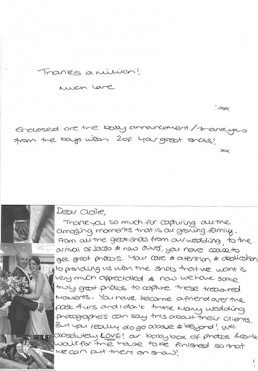 Thanks a Million!
Much love
xxx
Enclosed are the baby announcement/thankyous
from the boys with 2 of your great shots!
xx
Dear Claire,
Thank you so much for capturing all the
amazing moments that is our growing family.
From all the great shots from our wedding, to the
arrival of Jacob & now you never cease to
get great photos. Your care & attention & dedication
to providing us with the shots that we want is
very much appreciated & now we have some
truly great photos to capture these treasured
moments. You have become a friend over the
past 4yrs and I don't think many wedding
photographers can say this about their clients.
But you really do go above & beyond! We
absolutely LOVE! our baby box of photos & can't
wait for the house to be finished so that
we can put them on show!